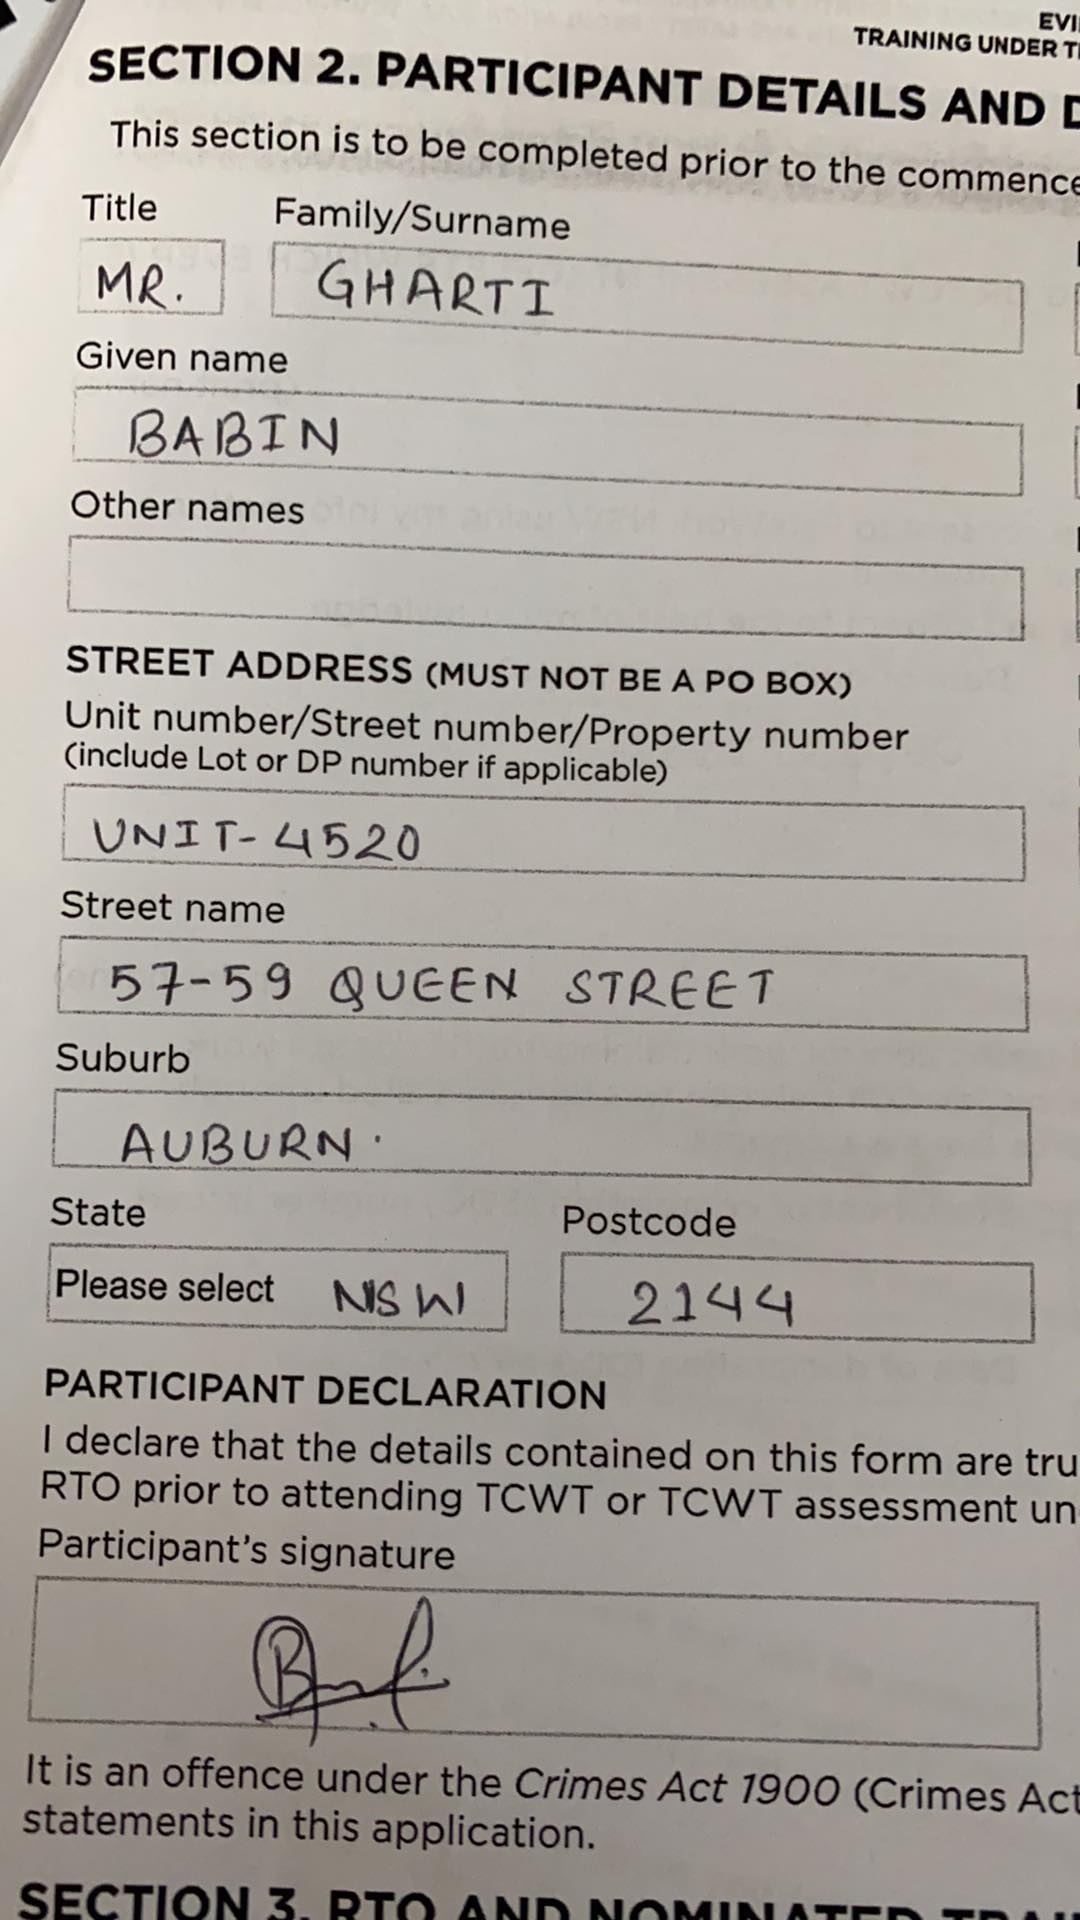 EVI
TRAINING UNDER T
SECTION 2. PARTICIPANT DETAILS AND D
This section is to be completed prior to the commence
Title Family/Surname
MR. GHARTI
Given name
BABIN
Other names
STREET ADDRESS (MUST NOT BE A PO BOX)
Unit number/Street number/Property number
(include Lot or DP number if applicable)
UNIT-4520
Street name
57-59 QUEEN STREET
Suburb
AUBURN.
State Postcode
Please select NSW 2144
PARTICIPANT DECLARATION
I declare that the details contained on this form are tru
RTO prior to attending TCWT or TCWT assessment un
Participant's signature
It is an offence under the Crimes Act 1900 (Crimes Act
statements in this application.
SECTION 3. RTO AND NOMINATED TRAI